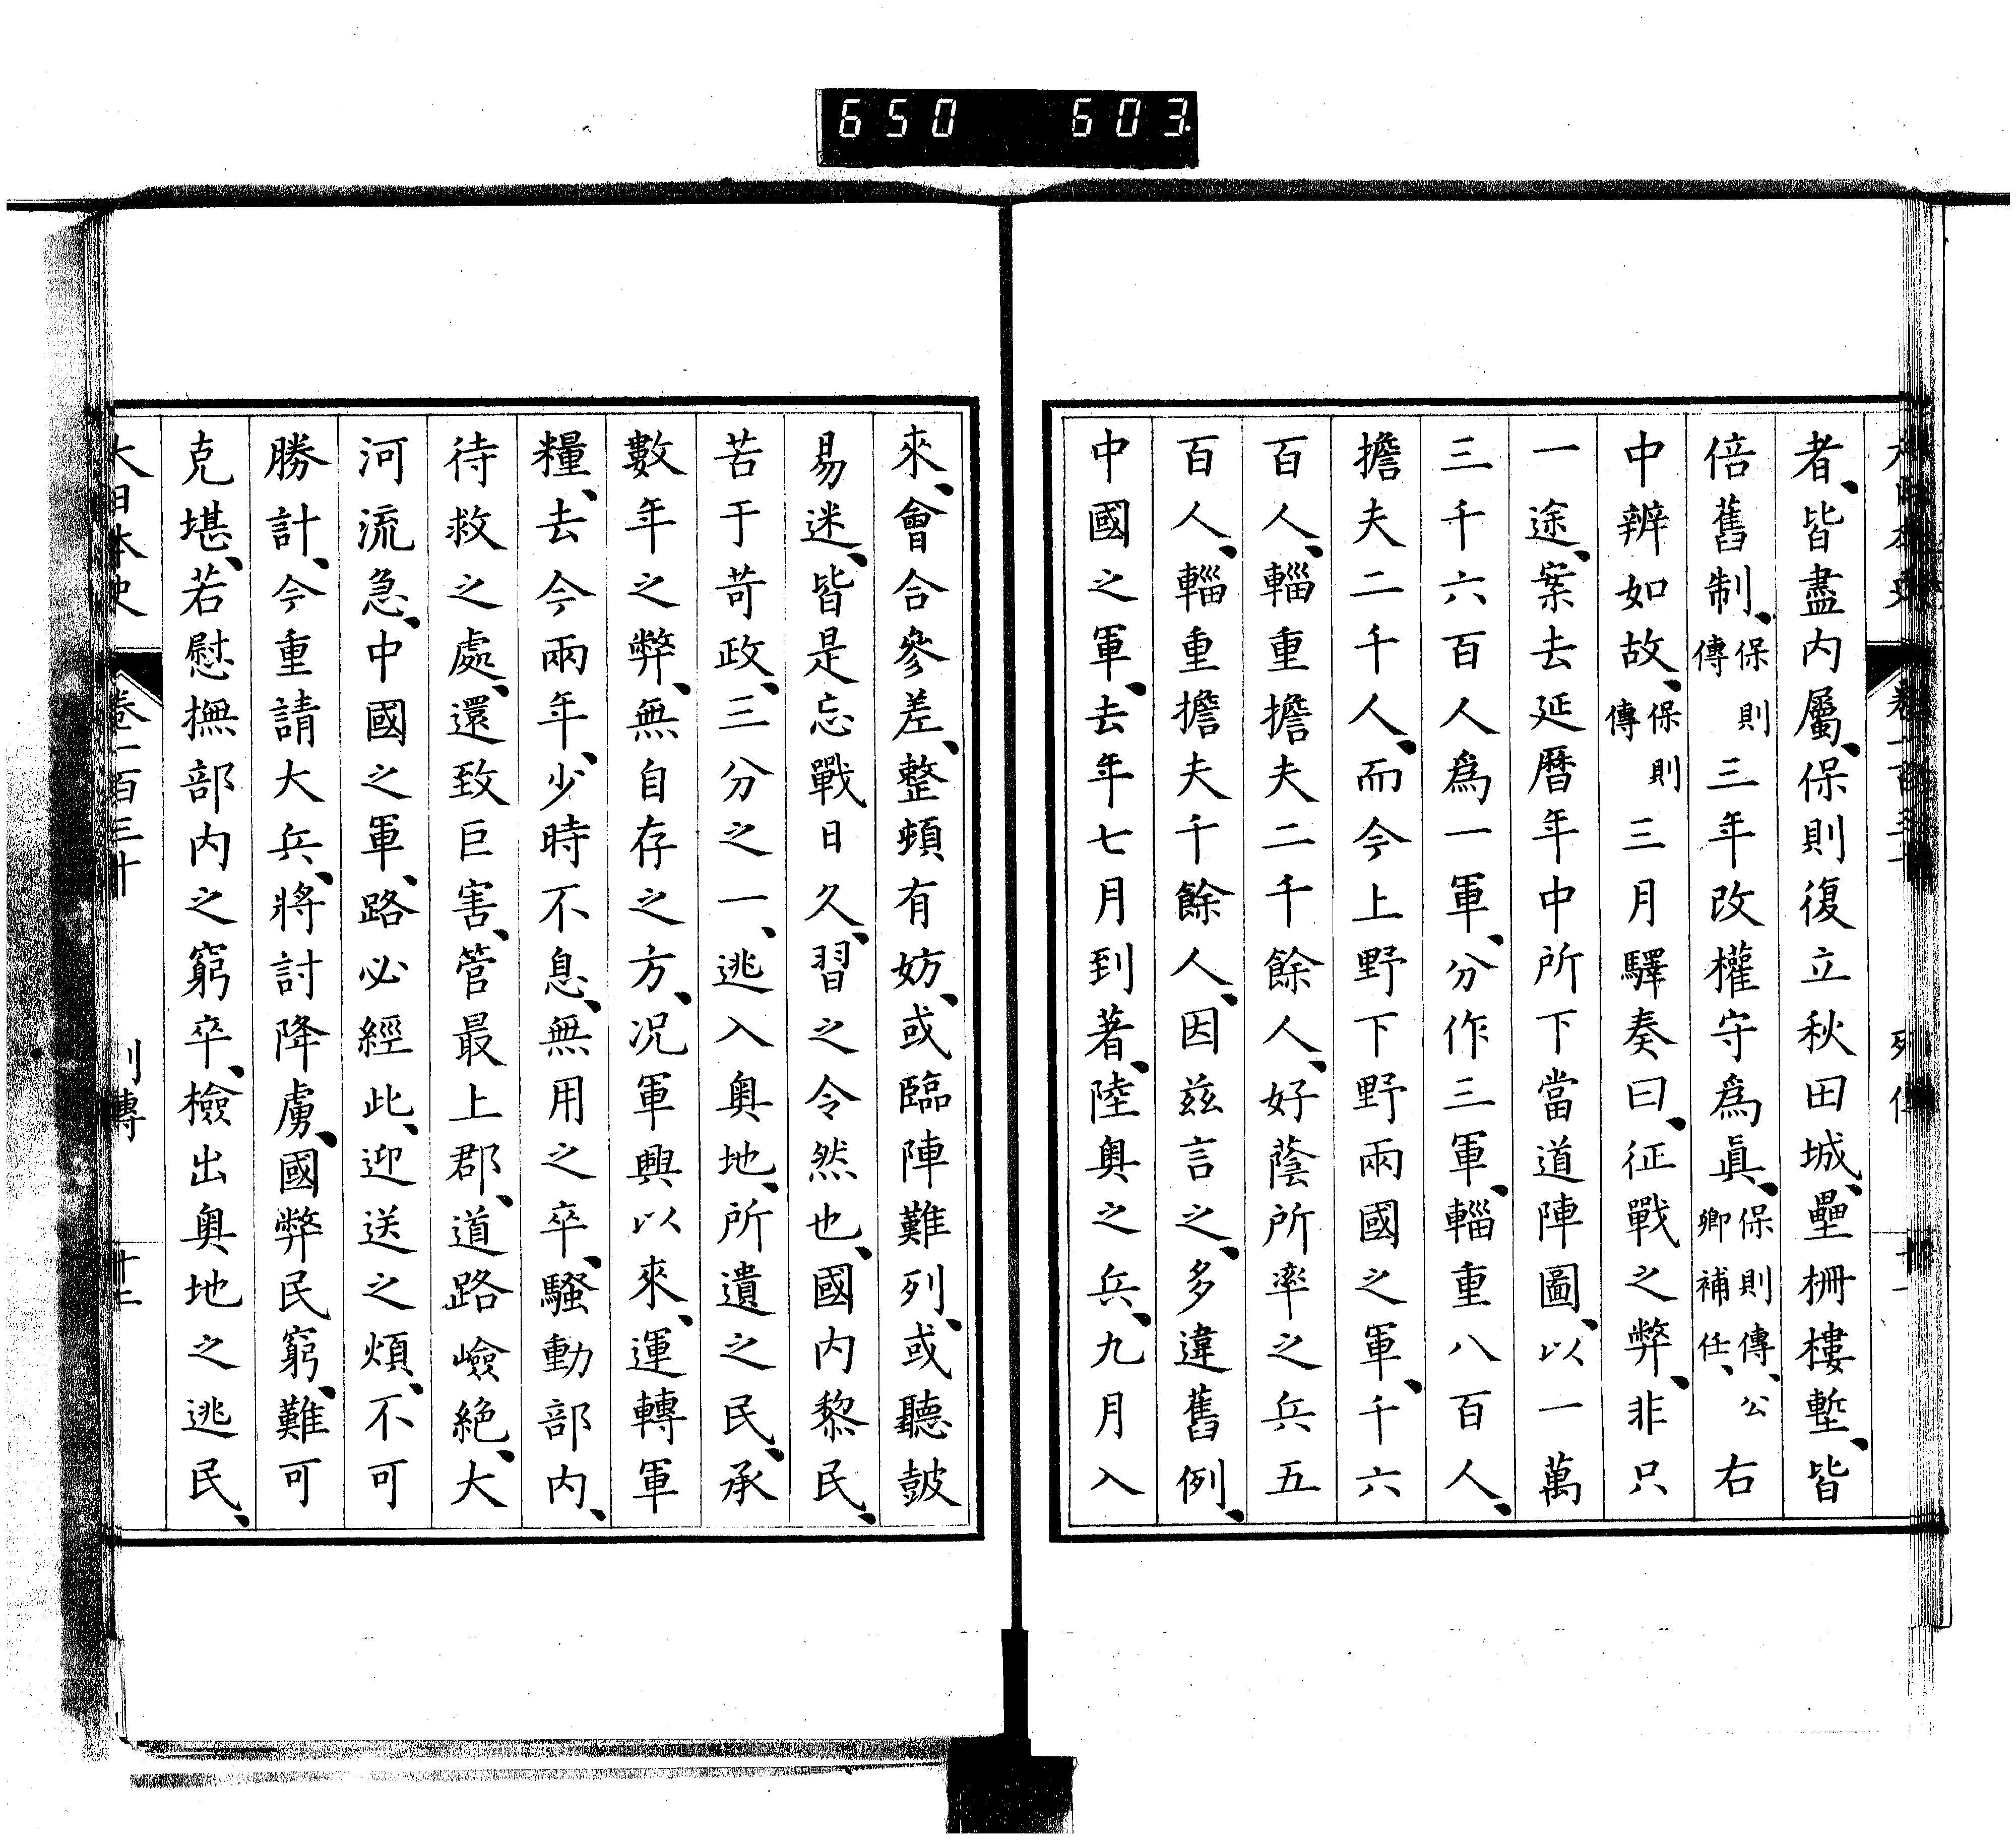 650 603
大日本史 卷一百三十 列傳 十一
者、皆盡内屬、保則復立秋田城、壘柵樓塹、皆
倍舊制、保則傳三年改權守爲眞、保則傳、公卿補任、右
中辨如故、保則傳三月驛奏曰、征戰之弊、非只
一途、案去延曆年中所下當道陣圖、以一萬
三千六百人爲一軍、分作三軍、輜重八百人、
擔夫二千人、而今上野下野兩國之軍、千六
百人、輜重擔夫二千餘人、好蔭所率之兵五
百人、輜重擔夫千餘人、因茲言之、多違舊例、
中國之軍、去年七月到著、陸奧之兵、九月入
來、會合參差、整頓有妨、或臨陣難列、或聽鼓
易迷、皆是忘戰日久、習之令然也、國内黎民、
苦于苛政、三分之一、逃入奧地、所遺之民、承
數年之弊、無自存之方、况軍興以來、運轉軍
糧、去今兩年、少時不息、無用之卒、騷動部内、
待救之處、還致巨害、管最上郡、道路嶮絶、大
河流急、中國之軍、路必經此、迎送之煩、不可
勝計、今重請大兵、將討降虜、國弊民窮、難可
克堪、若慰撫部内之窮卒、檢出奧地之逃民、
大日本史 卷一百三十 列傳 十二